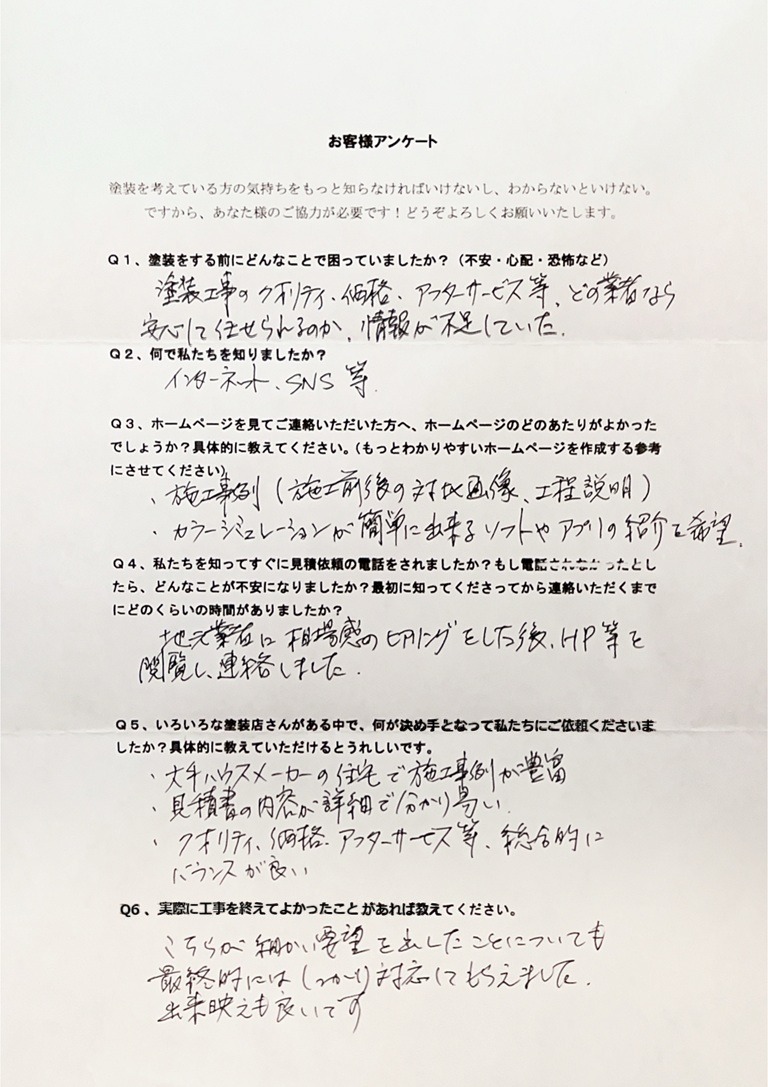 お客様アンケート
塗装を考えている方の気持ちをもっと知らなければいけないし、わからないといけない。
ですから、あなた様のご協力が必要です！どうぞよろしくお願いいたします。
Ｑ１、塗装をする前にどんなことで困っていましたか？（不安・心配・恐怖など）
塗装工事のクオリティ、価格、アフターサービス等、どの業者なら
安心して任せられるのか、情報が不足していた。
Ｑ２、何で私たちを知りましたか？
インターネット、SNS 等
Ｑ３、ホームページを見てご連絡いただいた方へ、ホームページのどのあたりがよかった
でしょうか？具体的に教えてください。（もっとわかりやすいホームページを作成する参考
にさせてください）
・施工事例（施工前後の対比画像、工程説明）
・カラーシミュレーションが簡単に出来るソフトやアプリの紹介を希望。
Ｑ４、私たちを知ってすぐに見積依頼の電話をされましたか？もし電話されなかったとし
たら、どんなことが不安になりましたか？最初に知ってくださってから連絡いただくまで
にどのくらいの時間がありましたか？
地元業者に相場感のヒアリングをした後、HP等を
閲覧し、連絡しました。
Ｑ５、いろいろな塗装店さんがある中で、何が決め手となって私たちにご依頼くださいま
したか？具体的に教えていただけるとうれしいです。
・大手ハウスメーカーの住宅で施工事例が豊富
・見積書の内容が詳細で分かり易い。
・クオリティ、価格、アフターサービス等、総合的に
バランスが良い
Q6、実際に工事を終えてよかったことがあれば教えてください。
こちらが細かい要望を出したことについても
最終的にはしっかり対応してもらえました。
出来映えも良いです